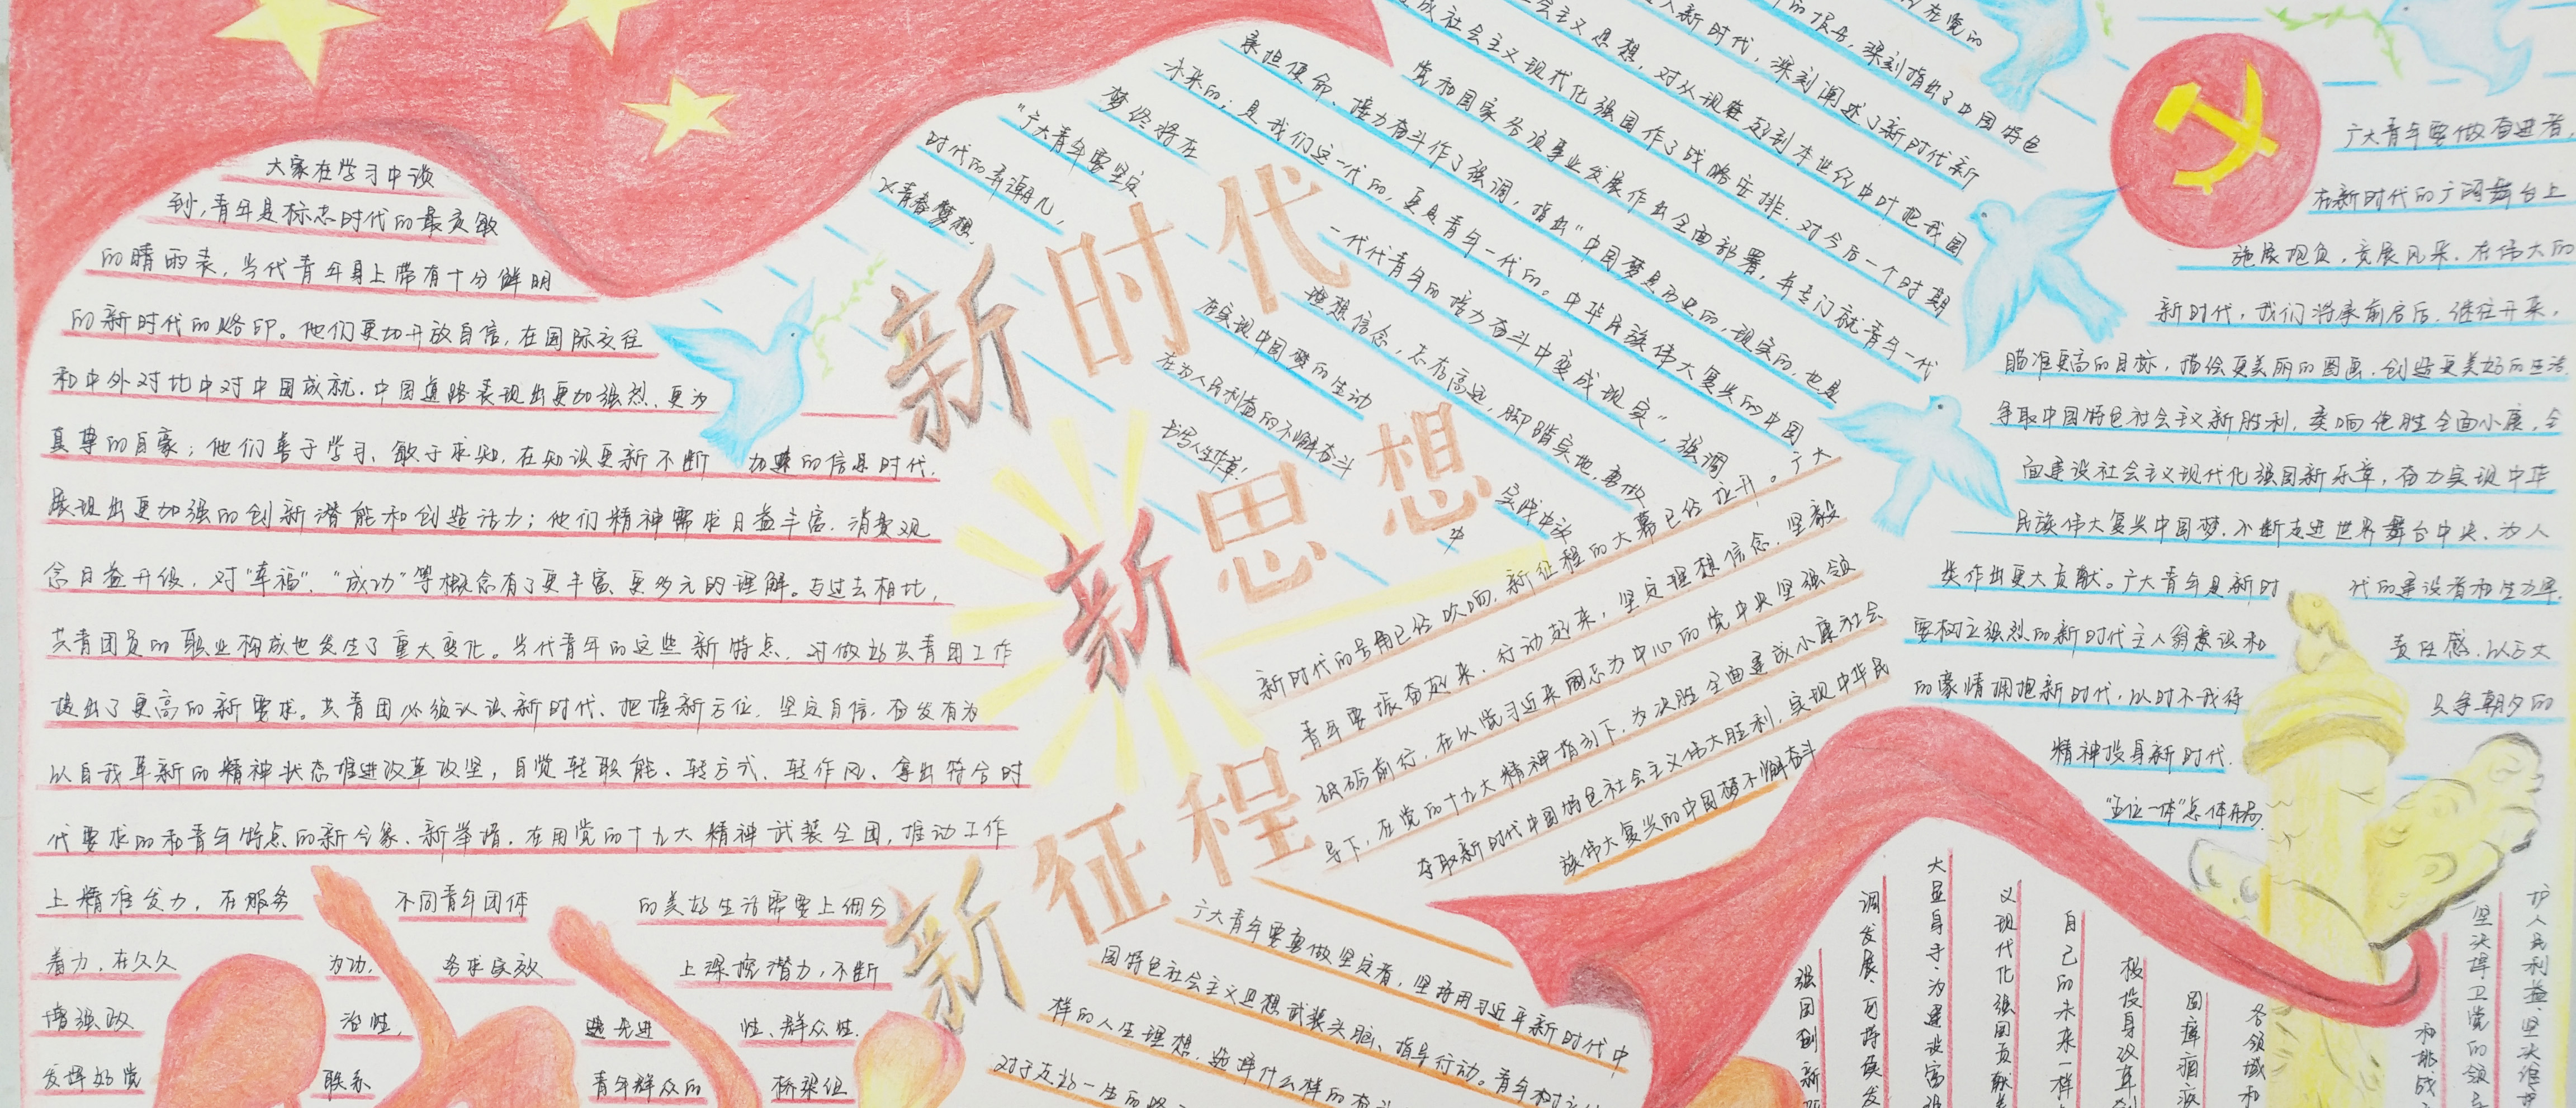 大家在学习中谈
到,青年是标志时代的最灵敏
的晴雨表,当代青年身上带有十分鲜明
的新时代的烙印。他们更加开放自信,在国际交往
和中外对比中对中国成就、中国道路表现出更加强烈、更为
真挚的自豪;他们善于学习、敏于求知,在知识更新不断 加速的信息时代,
展现出更加强的创新潜能和创造活力;他们精神需求日益丰富,消费观
念日益升级,对"幸福"、"成功"等概念有了更丰富、更多元的理解。与过去相比,
共青团员的职业构成也发生了重大变化。当代青年的这些新特点,对做好共青团工作
提出了更高的新要求。共青团必须认识新时代、把握新方位,坚定自信,奋发有为
以自我革新的精神状态推进改革攻坚,自觉转职能、转方式、转作风、拿出符合时
代要求的和青年特点的新气象、新举措。在用党的十九大精神武装全团,推动工作
上精准发力,在服务 不同青年团体 的美好生活需要上细分
着力,在久久 为功、 务求实效 上深挖潜力,不断
增强政 治性, 先进 性、群众性.
发挥好党 联系 青年群众的 桥梁纽
新时代
新思想
新征程
"广大青年要坚定
梦终将在
时代的弄潮儿,
义青春梦想,
未来的;是我们这一代的,更是青年一代的。中华民族伟大复兴的中国
承担使命、接力奋斗作了强调,指出"中国梦是历史的,现实的,也是
党和国家各项事业发展作出全面部署,并专门就青年一代
成社会主义现代化强国作了战略安排,对今后一个时期
会主义思想,对从现在起到本世纪中叶把我国
人新时代,深刻阐述了新时代新
的报告,深刻指出了中国特色
在党的
一代代青年的接力奋斗中变成现实",强调
理想信念,志存高远,脚踏实地,勇做
在实现中国梦的生动
实践中
在为人民利益的不懈奋斗
中
书写人生华章!
新时代的号角已经吹响,新征程的大幕已经拉开。广大
青年要振奋起来,行动起来,坚定理想信念,坚毅
砥砺前行,在以党习近平同志为中心的党中央坚强领
导下,在党的十九大精神指引下,为决胜全面建成小康社会
夺取新时代中国特色社会主义伟大胜利,实现中华民
族伟大复兴的中国梦不懈奋斗
广大青年要勇做坚定者,坚持用习近平新时代中
国特色社会主义思想武装头脑、指导行动。青年树立
样的人生理想,选择什么样的奋斗
对于走好一生的路
广大青年要做奋进者,
在新时代的广阔舞台上
施展抱负,竞展风采,在伟大的
新时代,我们将承前启后,继往开来,
瞄准更高的目标,描绘更美丽的图画,创造更美好的生活,
争取中国特色社会主义新胜利,奏响决胜全面小康,全
面建设社会主义现代化强国新乐章,奋力实现中华
民族伟大复兴中国梦,不断走进世界舞台中央,为人
类作出更大贡献。广大青年是新时 代的建设者和生力军
要树立强烈的新时代主人翁意识和 责任感,以
的豪情拥抱新时代,以时不我待 只争朝夕的
精神投身新时代.
"五位一体"总体布局
强国创新
调发展、可持续发
大显身手,为建设富
义现代化强国贡献
自己的未来一样
极投身改革创
国瘴痼疾
各领域和
和挑战
坚决捍卫党的领
护人民利益、坚决维护